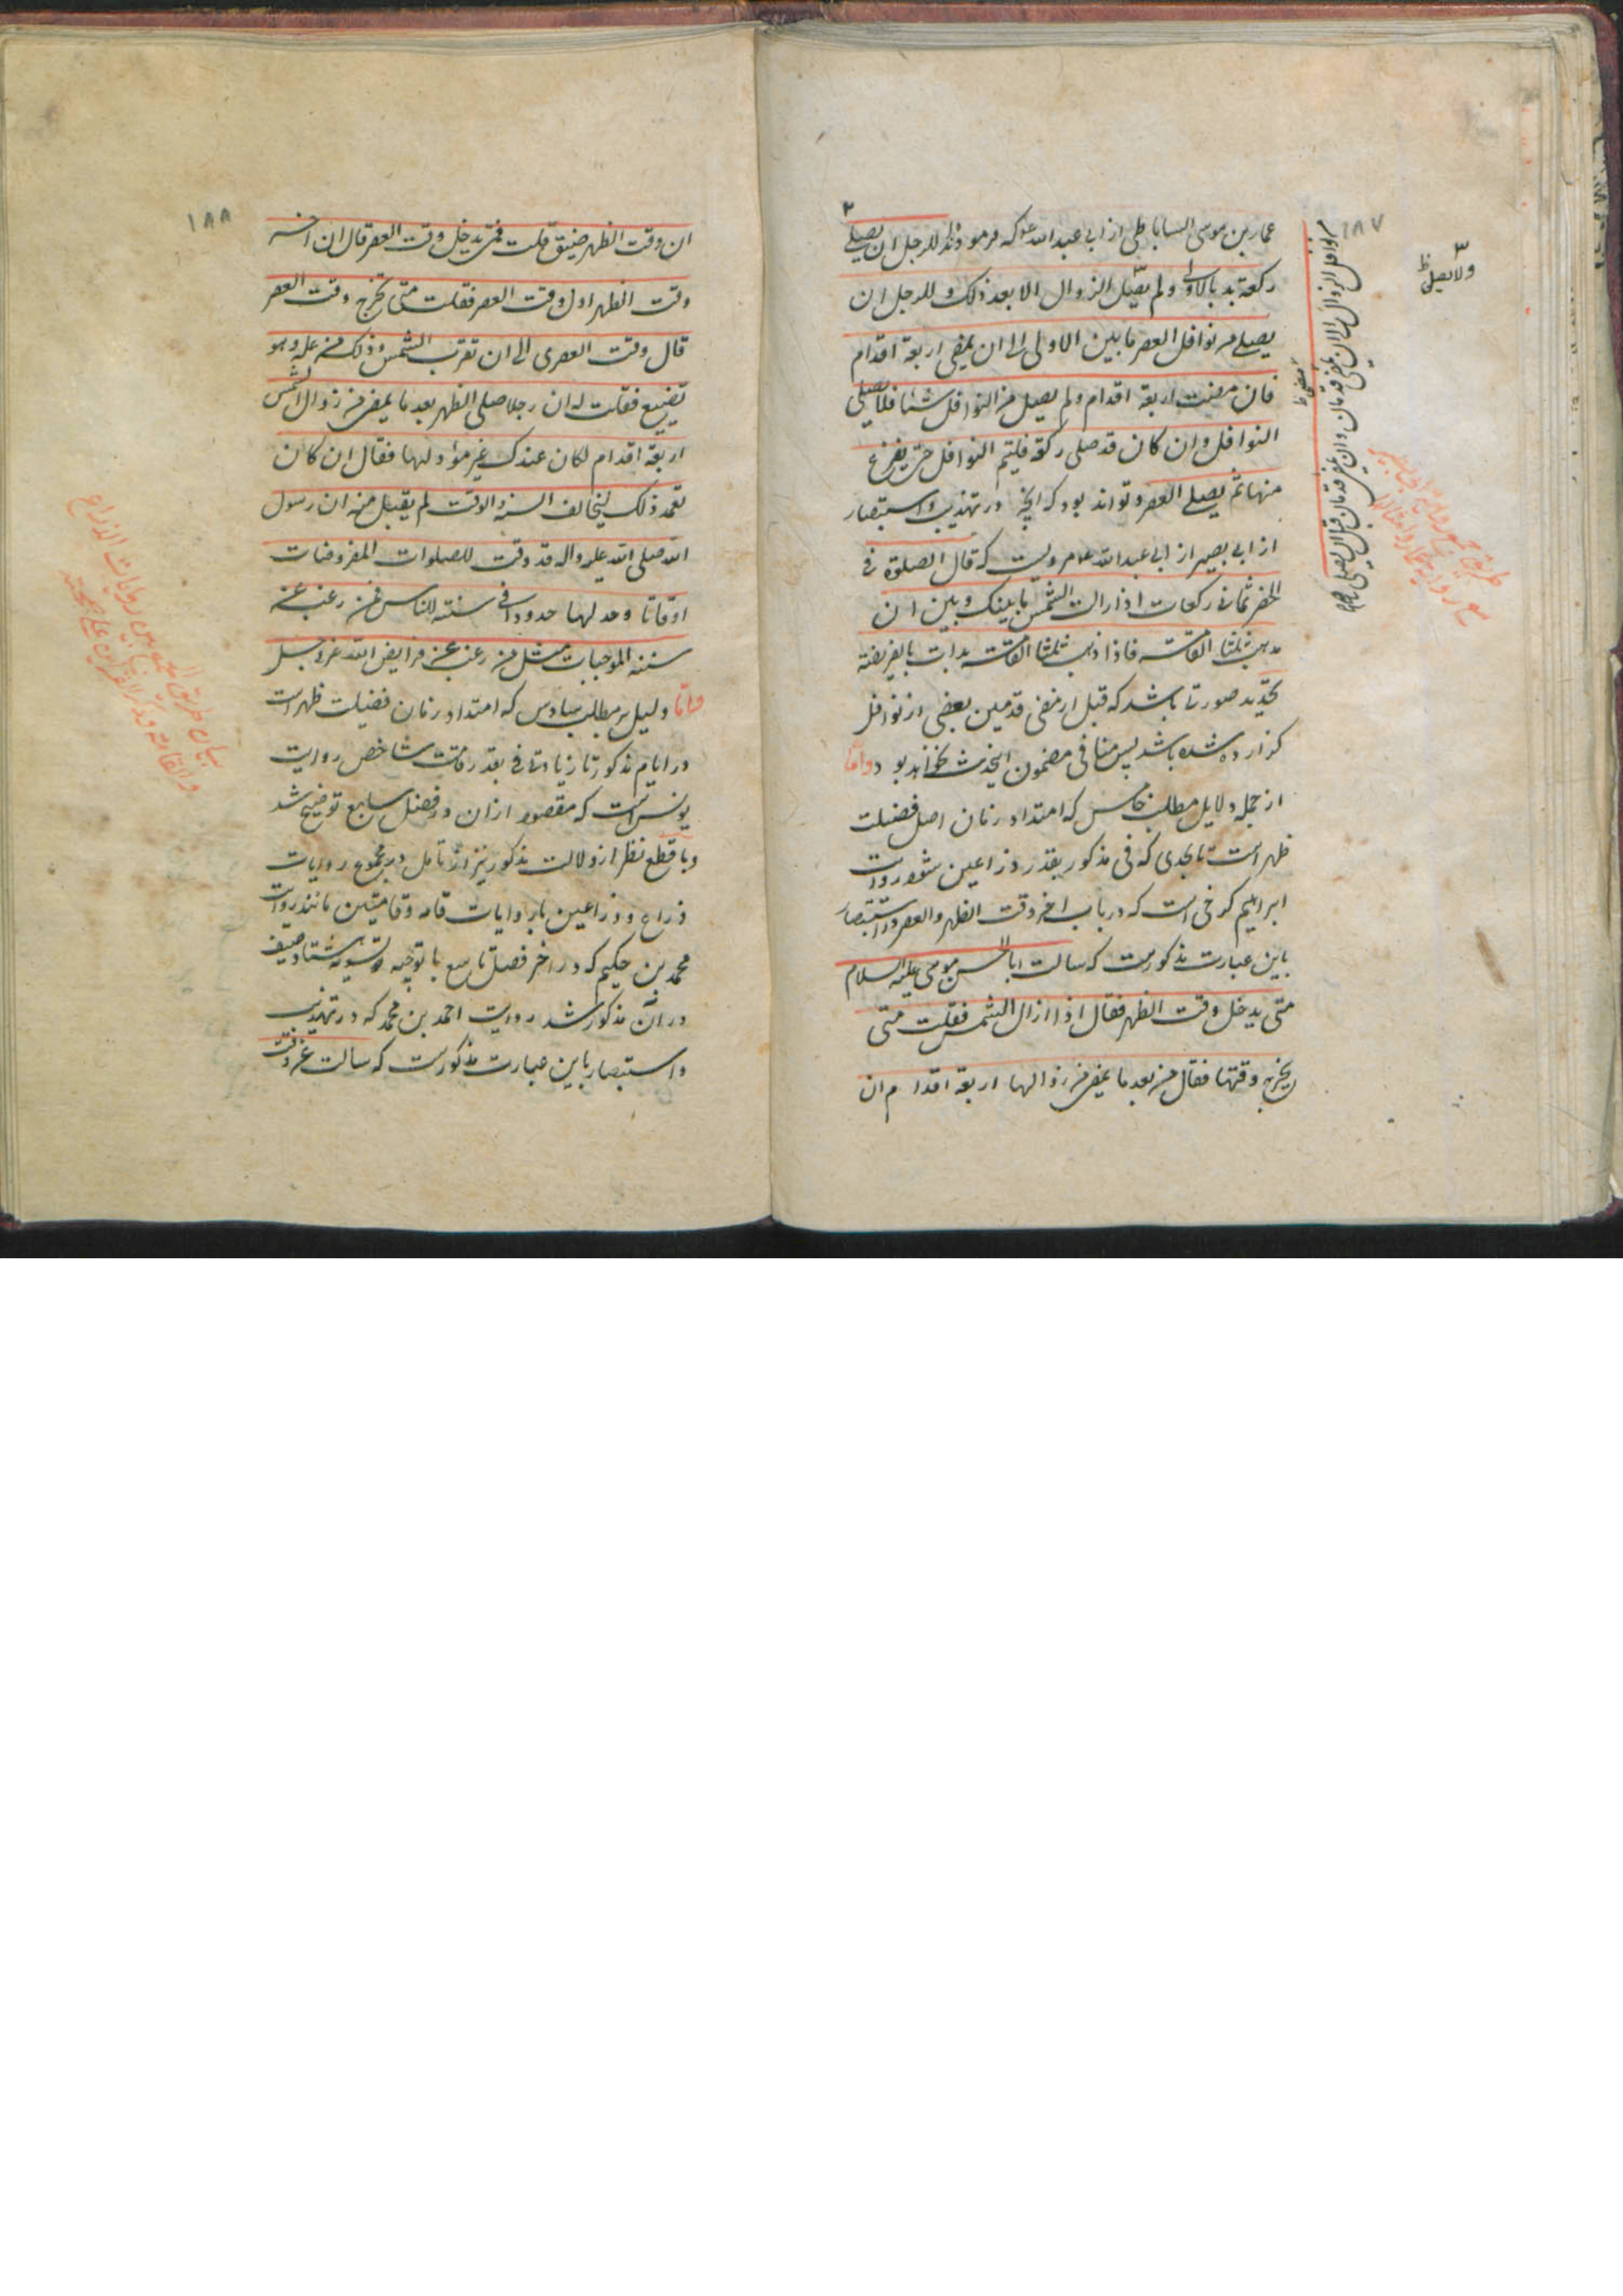 ١٨٧
عمار بن موسی الساباطی از ابی عبدالله ع که فرموده للرجل ان یصلی
رکعة بدء بالاولی ولم یصل الزوال الا بعد ذلک وللرجل ان
یصلی من نوافل العصر مابین الاولی الی ان یمضی اربعة اقدام
فان مضت اربعة اقدام ولم یصل من النوافل شیئا فلا یصلی
النوافل وان کان قد صلی رکعة فلیتم النوافل حتی یفرغ
منها ثم یصلی العصر و تواند بود که آنچه در تهذیب و استبصار
از ابی بصیر از ابی عبدالله ع مرویست که قال الصلوة فی
الحضر ثمانی رکعات اذا زالت الشمس مابینک وبین ان
یذهب ثلثا القامة فاذا ذهب ثلثا القامة بدات بالفریضة
تحدید صورتی باشد که قبل از مضی قدمین بعضی از نوافل
گزارده شده باشد پس منافی مضمون این حدیث نخواهد بود واما
از جمله دلایل مطلب خامس که امتداد زمان اصل فضیلت
ظهر است تا بحدی که فی مذکور بقدر ذراعین شود روایت
ابراهیم کرخی است که در باب اخر وقت الظهر والعصر در استبصار
باین عبارت مذکورست که سالت ابا الحسن موسی علیه السلام
متی یدخل وقت الظهر فقال اذا زال الشمس فقلت متی
یخرج وقتها فقال من بعد ما یمضی من زوالها اربعة اقدام ان
من نوافل الزوال الی ان یمضی قدمان وان مضی قدمان قبل ان یصلی رکعة
ولا یصلی ظ
١٨٨
ان وقت الظهر ضیق قلت فمتی یدخل وقت العصر قال ان اخر
وقت الظهر اول وقت العصر فقلت متی تخرج وقت العصر
قال وقت العصر الی ان تغرب الشمس وذلک من علة وهو
تضییع فقلت له ان رجلا صلی الظهر بعد ما یمضی من زوال الشمس
اربعة اقدام لکان عندک غیر مؤد لها فقال ان کان
تعمد ذلک لیخالف السنة والوقت لم یقبل منه ان رسول
الله صلی الله علیه واله قد وقت للصلوات المفروضات
اوقاتا وحد لها حدودا فی سنته للناس فمن رغب عن
سننه الموجبات مثل من رغب عن فرایض الله عز وجل
واما دلیل بر مطلب سادس که امتداد زمان فضیلت ظهر است
در ایام مذکور تا زیادتی فی بقدر قامت شاخص روایت
یونس است که مقصود از ان در فصل سابع توضیح شد
و با قطع نظر از دلالت مذکور نیز از تامل در مجموع روایات
ذراع و ذراعین با روایات قامه و قامتین مانند روایت
محمد بن حکیم که در اخر فصل تاسع با توجیه و تسویه شتا و صیف
در ان مذکور شد روایت احمد بن محمد که در تهذیب
و استبصار باین عبارت مذکورست که سالت عن وقت
بیان طریق الجمع بین روایات الذراع